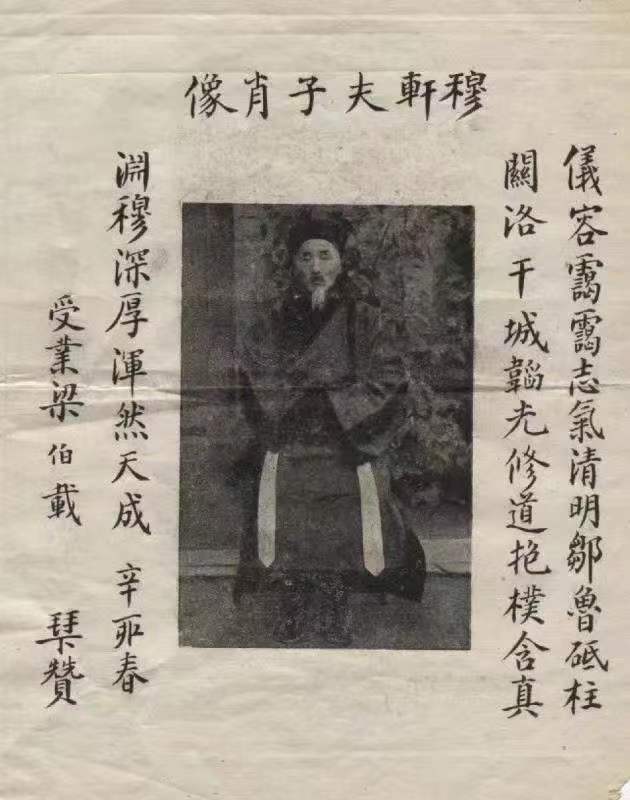 穆軒夫子肖像
儀容靄靄志氣清明鄒魯砥柱
關洛干城韜光修道抱樸含真
淵穆深厚渾然天成 辛丣春
受業梁伯載 琹贊